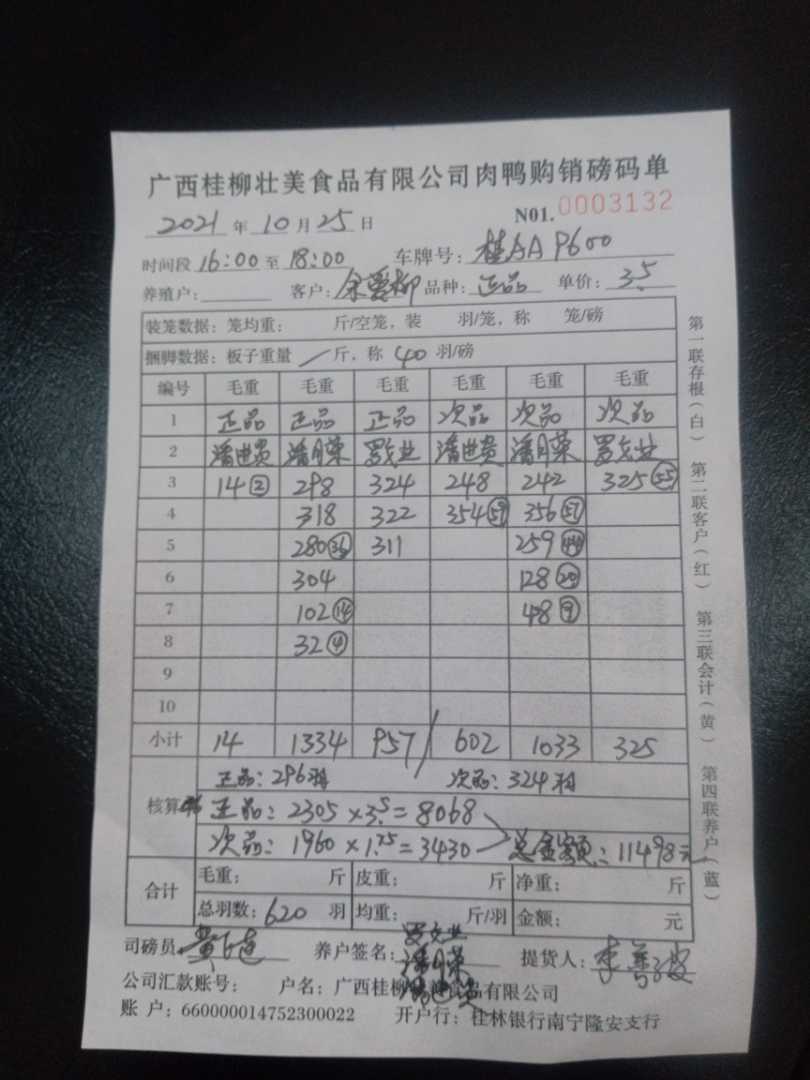 广西桂柳壮美食品有限公司肉鸭购销磅码单
2021 年 10 月 25 日 N01. 0003132
时间段 16:00 至 18:00 车牌号: 桂AA P600
养殖户: 客户: 余爱柳 品种: 正品 单价: 3.5
装笼数据: 笼均重: 斤/空笼, 装 羽/笼, 称 笼/磅
捆脚数据: 板子重量 / 斤, 称 40 羽/磅
编号 毛重 毛重 毛重 毛重 毛重 毛重
1 正品 正品 正品 次品 次品 次品
2 潘世贵 潘月荣 罗文业 潘世贵 潘月荣 罗文业
3 14② 298 324 248 242 325(55)
4 318 322 354(59) 356(57)
5 280(36) 311 259(44)
6 304 128(20)
7 102(14) 48(9)
8 32(4)
9
10
小计 14 1334 957 / 602 1033 325
正品: 296羽 次品: 324羽
核算 正品: 2305 × 3.5 = 8068
次品: 1960 × 1.75 = 3430 总金额: 11498元
合计 毛重: 斤 皮重: 斤 净重: 斤
总羽数: 620 羽 均重: 斤/羽 金额: 元
罗文业
司磅员 养户签名: 潘月荣 提货人:
潘世贵
公司汇款账号: 户名: 广西桂柳壮美食品有限公司
账 户: 660000014752300022 开户行: 桂林银行南宁隆安支行
第一联存根(白) 第二联客户(红) 第三联会计(黄) 第四联养户(蓝)